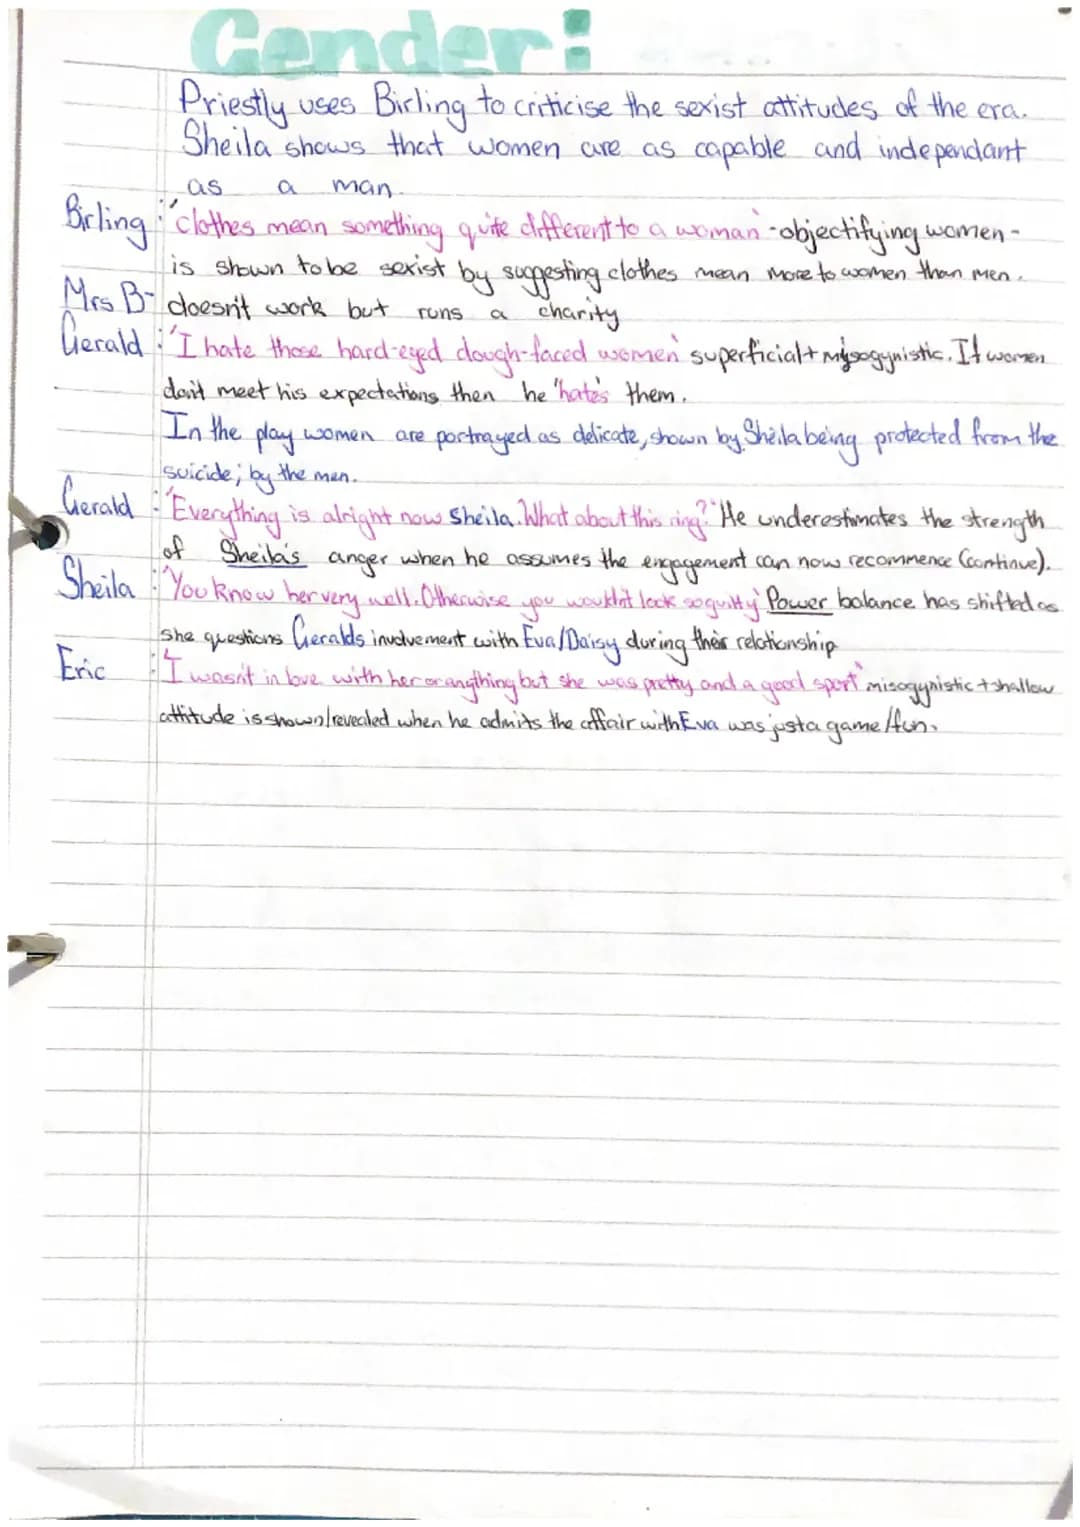 Gender:
Priestly uses Birling to criticise the sexist attitudes of the era.
Sheila shows that women are as capable and independant
as a man.
Birling: 'clothes mean something quite different to a woman' - objectifying women -
is shown to be sexist by suggesting clothes mean more to women than men.
Mrs B- doesn't work but runs a charity
Gerald: 'I hate those hard-eyed dough-faced women' superficial + mysogynistic. If women
don't meet his expectations then he 'hate's them.
In the play women are portrayed as delicate, shown by Sheila being protected from the
suicide; by the men.
Gerald: 'Everything is alright now Sheila. What about this ring?' He underestimates the strength
of Sheila's anger when he assumes the engagement can now recommence (continue).
Sheila: 'You know her very well. Otherwise you wouldn't look so guilty' Power balance has shifted as
she questions Geralds involvement with Eva/Daisy during their relationship
Eric: 'I wasn't in love with her or anything but she was pretty and a good sport' misogynistic + shallow
attitude is shown/revealed when he admits the affair with Eva was just a game/fun.